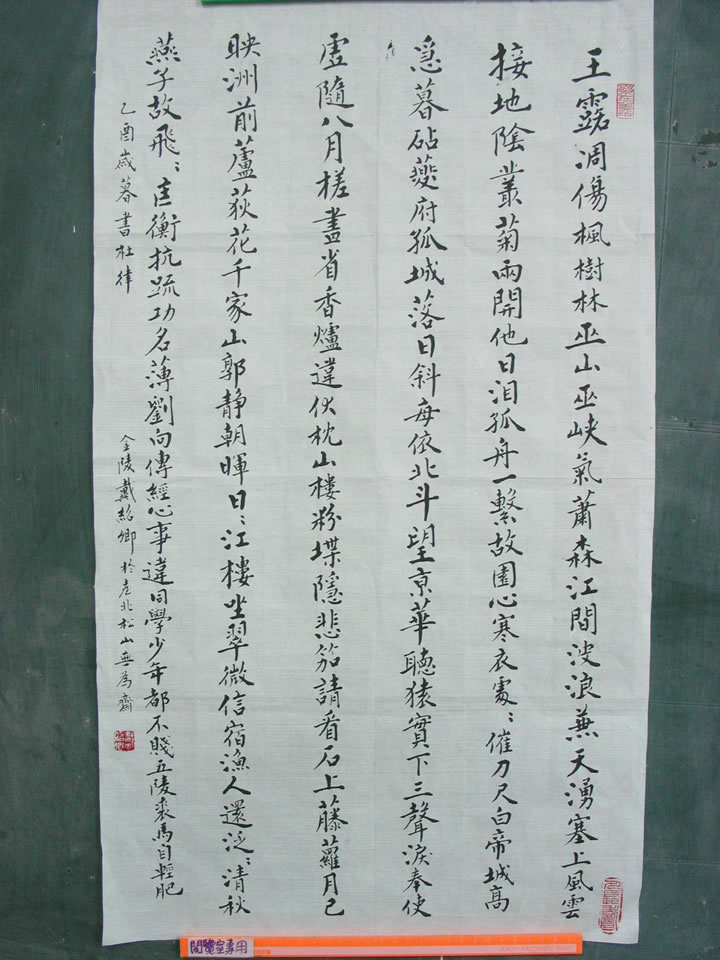 王露凋傷楓樹林巫山巫峽氣蕭森江間波浪兼天湧塞上風雲
接地陰叢菊兩開他日泪孤舟一繫故園心寒衣處〻催刀尺白帝城高
急暮砧夔府孤城落日斜每依北斗望京華聽猿實下三聲淚奉使
虛隨八月槎畫省香爐違伏枕山樓粉堞隱悲笳請看石上藤蘿月已
映洲前蘆荻花千家山郭靜朝暉日〻江樓坐翠微信宿漁人還泛〻清秋
燕子故飛〻匡衡抗疏功名薄劉向傳經心事違同學少年都不賤五陵裘馬自輕肥
乙酉歲暮書杜律
金陵戴紹卿於台北松山無為齋
閱覽室專用
30cm Magnetic Ruler